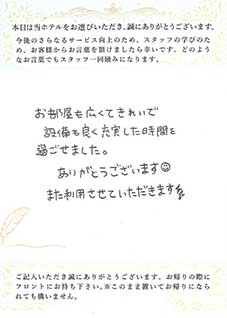 本日は当ホテルをお選びいただき、誠にありがとうございます。
今後のさらなるサービス向上のため、スタッフの学びのため、お客様からお言葉を頂けましたら幸いです。どのようなお言葉でもスタッフ一同励みになります。
お部屋も広くてきれいで
設備も良く充実した時間を
過ごせました。
ありがとうございます☺
また利用させていただきます
ご記入いただき誠にありがとうございます。お帰りの際に
フロントにお持ち下さい。※このまま置いてお帰りになら
れても構いません。